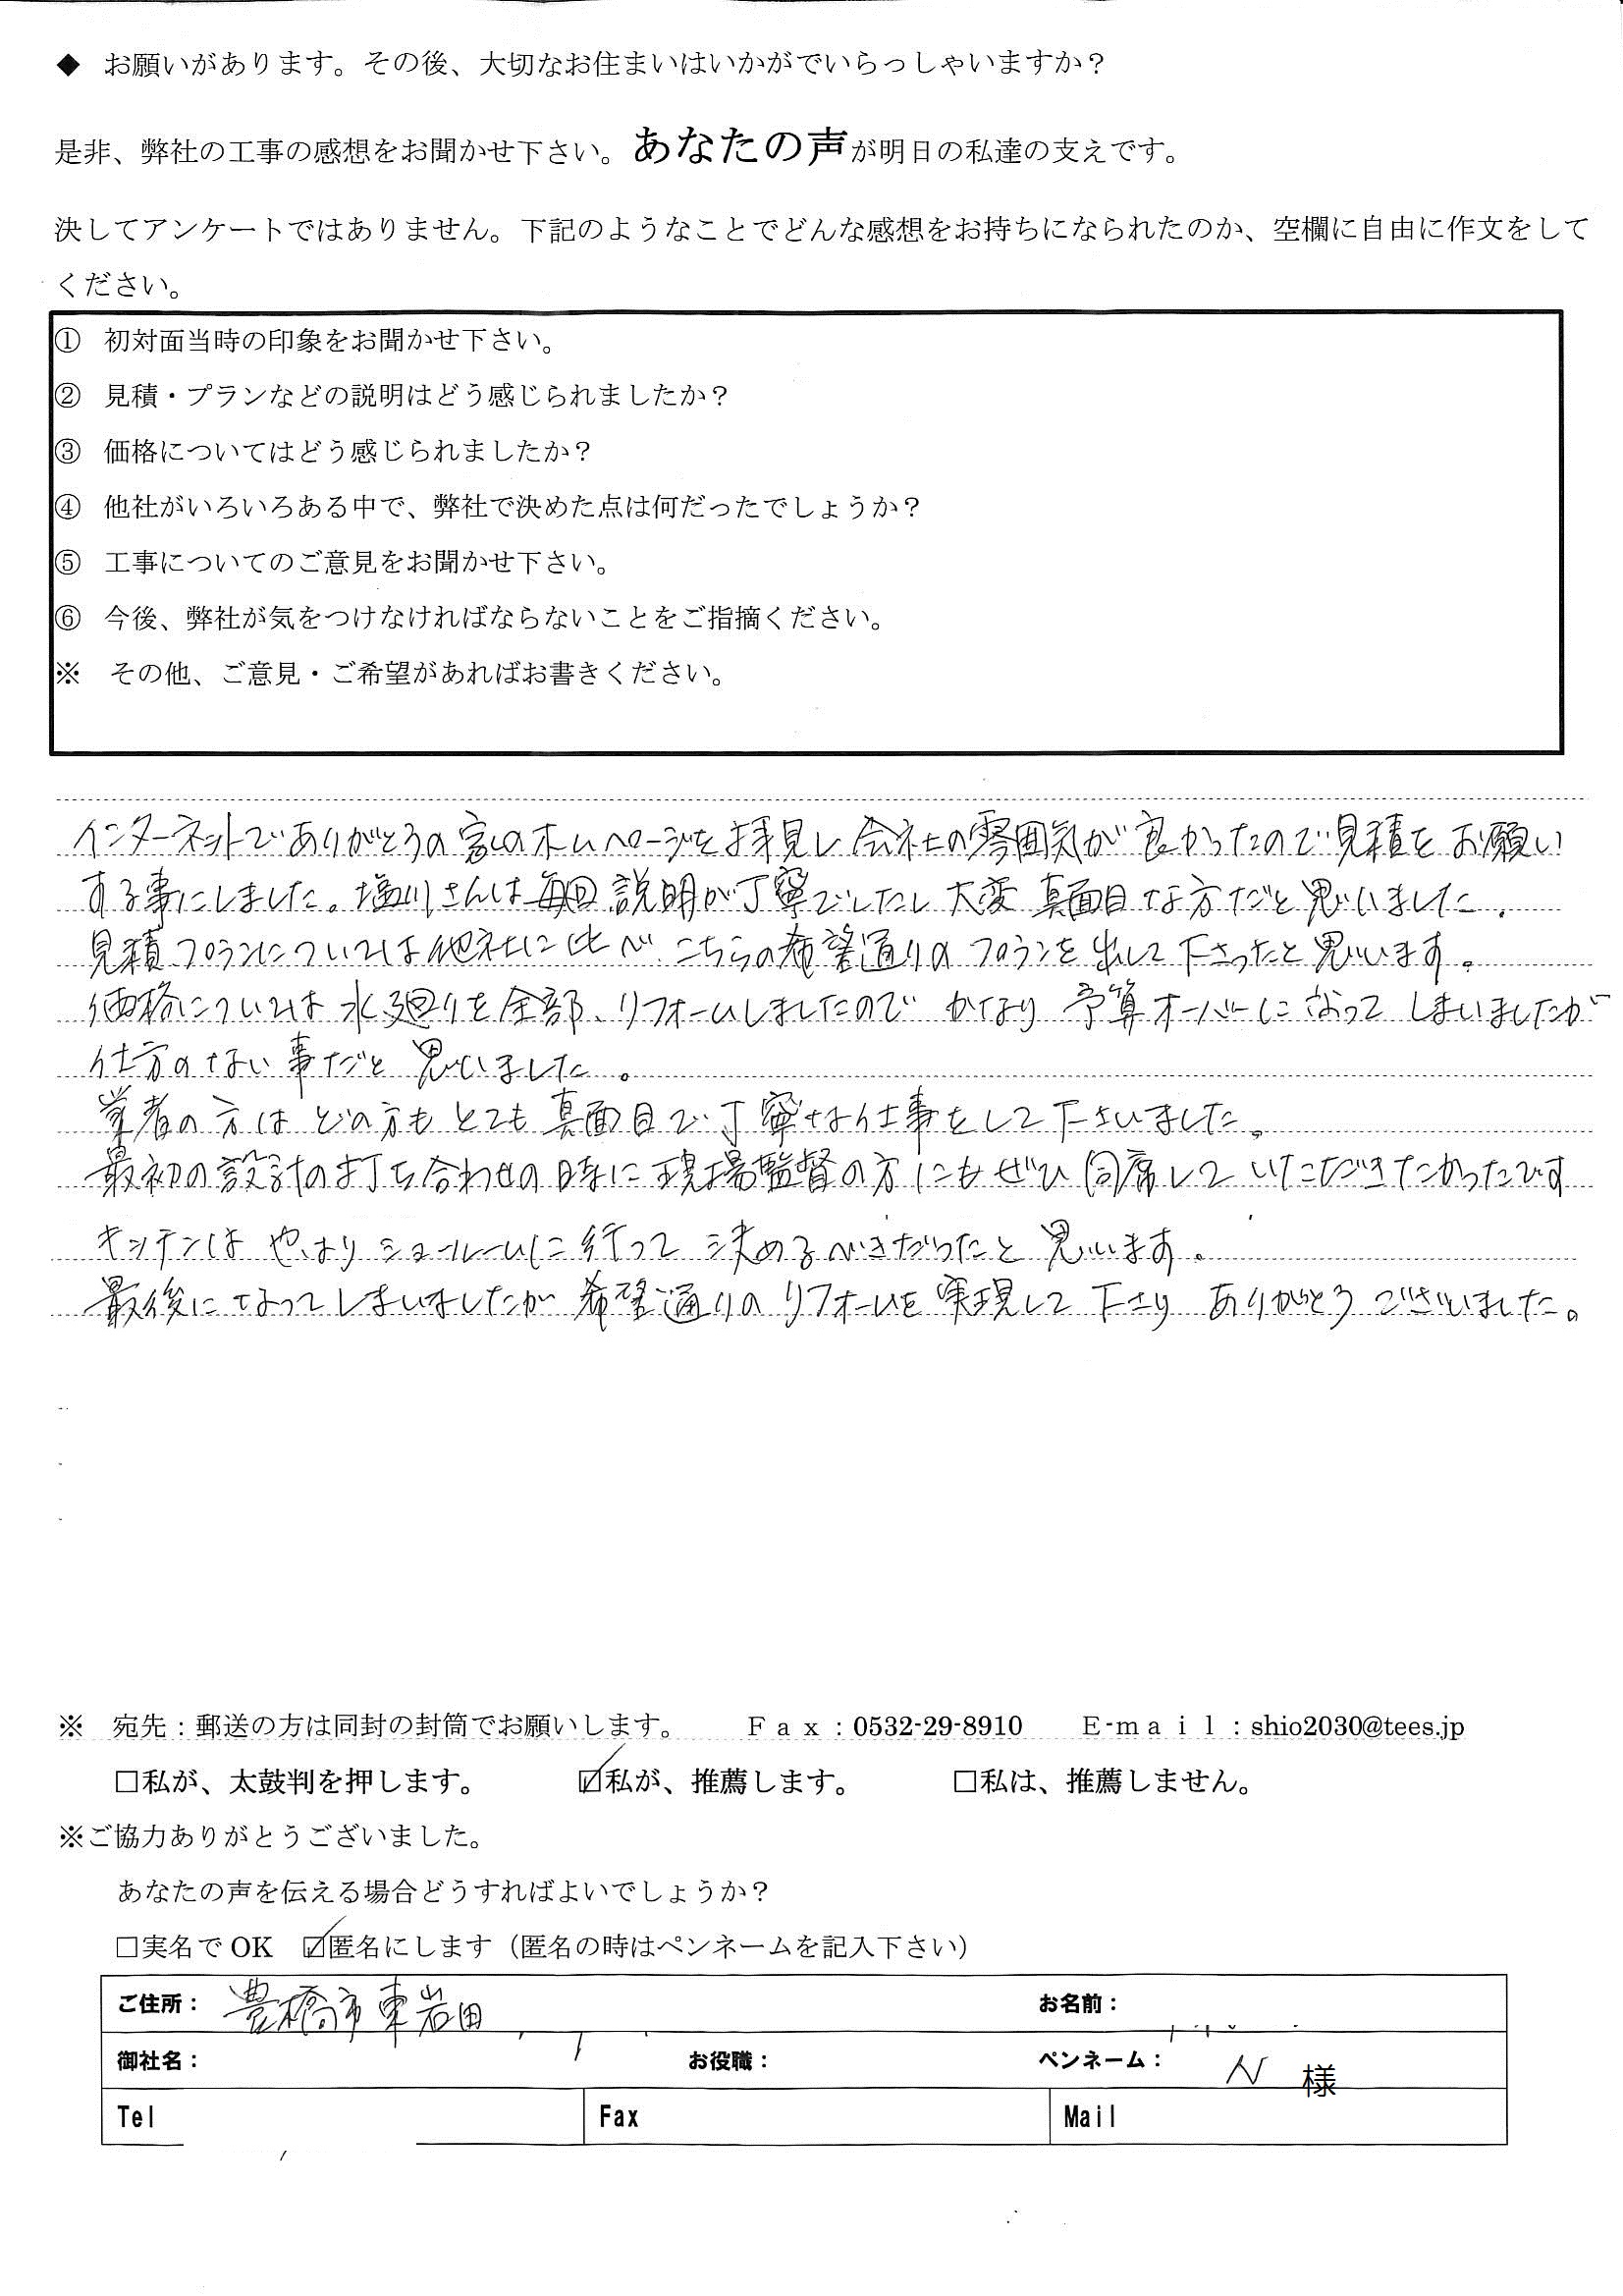 ◆ お願いがあります。その後、大切なお住まいはいかがでいらっしゃいますか?
是非、弊社の工事の感想をお聞かせ下さい。あなたの声が明日の私達の支えです。
決してアンケートではありません。下記のようなことでどんな感想をお持ちになられたのか、空欄に自由に作文をして
ください。
① 初対面当時の印象をお聞かせ下さい。
② 見積・プランなどの説明はどう感じられましたか?
③ 価格についてはどう感じられましたか?
④ 他社がいろいろある中で、弊社で決めた点は何だったでしょうか?
⑤ 工事についてのご意見をお聞かせ下さい。
⑥ 今後、弊社が気をつけなければならないことをご指摘ください。
※ その他、ご意見・ご希望があればお書きください。
インターネットでありがとうの家のホームページを拝見し会社の雰囲気が良かったので見積をお願い
する事にしました。塩川さんは毎回説明が丁寧でしたし大変真面目な方だと思いました.
見積プランについては他社に比べこちらの希望通りのプランを出して下さったと思います。
価格については水廻りを全部、リフォームしましたのでかなり予算オーバーになってしまいましたが
仕方のない事だと思いました。
業者の方はどの方もとても真面目で丁寧な仕事をして下さいました。
最初の設計の打ち合わせの時に現場監督の方にもぜひ同席していただきたかったです
キッチンはやはりショールームに行って決めるべきだったと思います。
最後になってしまいましたが希望通りのリフォームを実現して下さりありがとうございました。
※ 宛先:郵送の方は同封の封筒でお願いします。 Fax:0532-29-8910 E-mail:shio2030@tees.jp
□私が、太鼓判を押します。 ☑私が、推薦します。 □私は、推薦しません。
※ご協力ありがとうございました。
あなたの声を伝える場合どうすればよいでしょうか?
□実名でOK ☑匿名にします(匿名の時はペンネームを記入下さい)
ご住所: 豊橋市東岩田 お名前:
御社名: お役職: ペンネーム: N 様
Tel Fax Mail